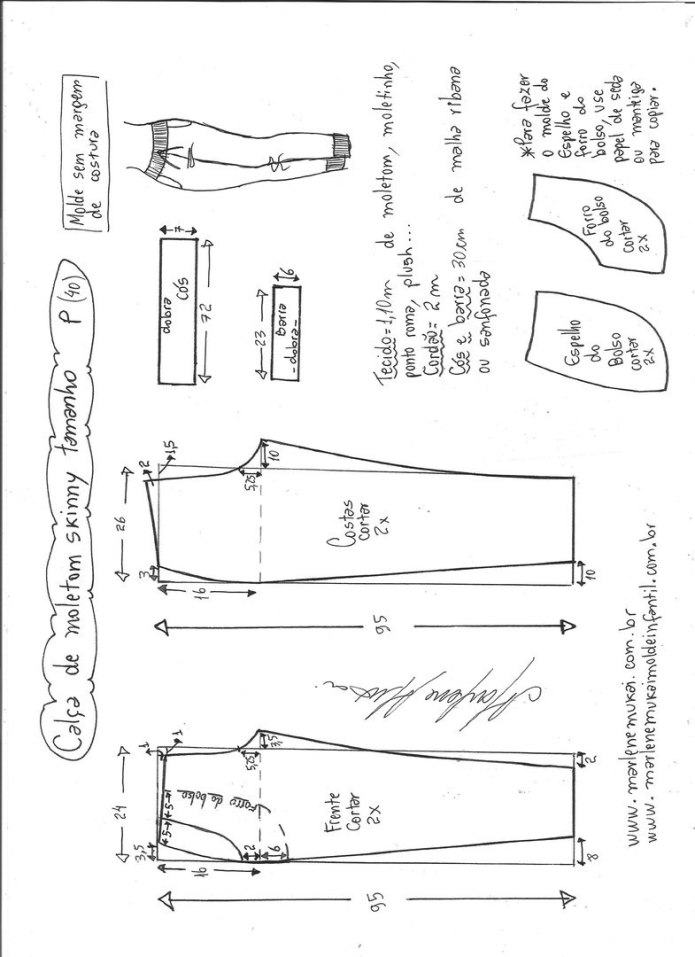 Calça de moletom skinny tamanho P (40)
Molde sem margem
de costura
24
3,5
1
1
5
5
5
forro do bolso
3,5
2
6
16
Frente
Cortar
2X
2
8
95
26
3
2
1,5
10
16
Costas
cortar
2X
10
95
dobra
cós
7
72
Barra
-dobra-
6
23
Tecido=1,10m de moletom, moletinho,
ponto roma, plush...
Cordão= 2m
Cós e barra= 30cm de malha ribana
ou sanfonada
*Para fazer
o molde do
Espelho e
forro do
bolso, use
papel de seda
ou manteiga
para copiar.
Espelho
do
Bolso
cortar
2X
Forro
do bolso
cortar
2X
www.marlenemukai.com.br
www.marlenemukaimoldeinfantil.com.br